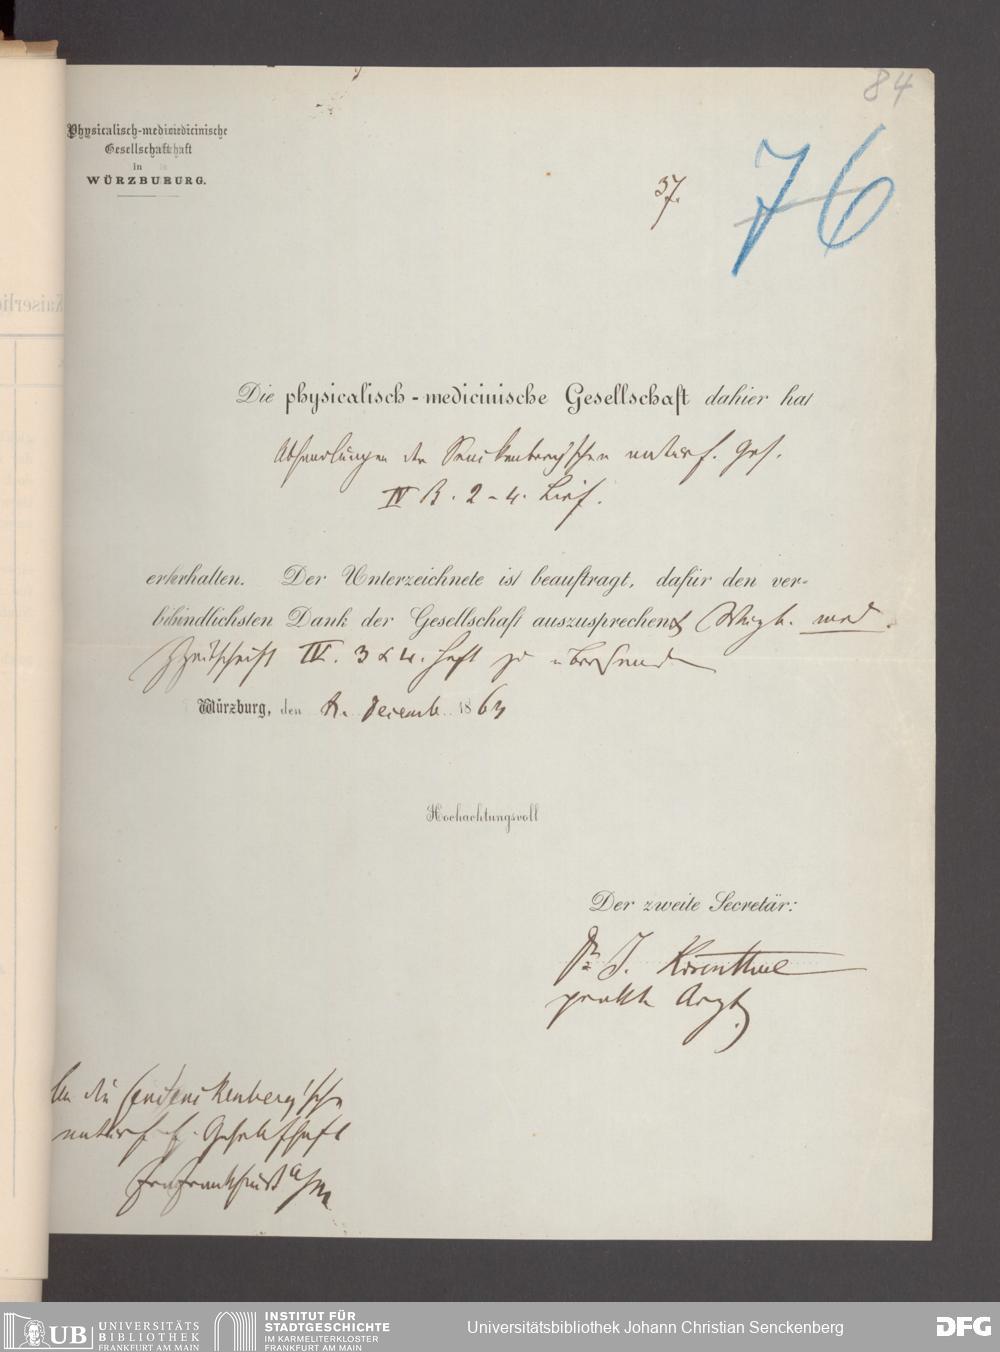 84
Physicalisch-medicinische
Gesellschaft
in
WÜRZBURG.
37.
76
Die physicalisch-medicinische Gesellschaft dahier hat
Abhandlungen der Senckenberg'schen naturf. Ges.
IV B. 2-4. Lief.
erhalten. Der Unterzeichnete ist beauftragt, dafür den ver-
bindlichsten Dank der Gesellschaft auszusprechen & Würzb. med.
Zeitschrift IV. 3 & 4. Heft zu übersenden
Würzburg, den 2. Decemb. 1863
Hochachtungsvoll
Der zweite Secretär:
Dr J. Rosenthal
prakt. Arzt.
An die Senckenberg'sche
naturf. Gesellschaft
Frankfurt a/M
UB UNIVERSITÄTS
BIBLIOTHEK
FRANKFURT AM MAIN
INSTITUT FÜR
STADTGESCHICHTE
IM KARMELITERKLOSTER
FRANKFURT AM MAIN
Universitätsbibliothek Johann Christian Senckenberg
DFG